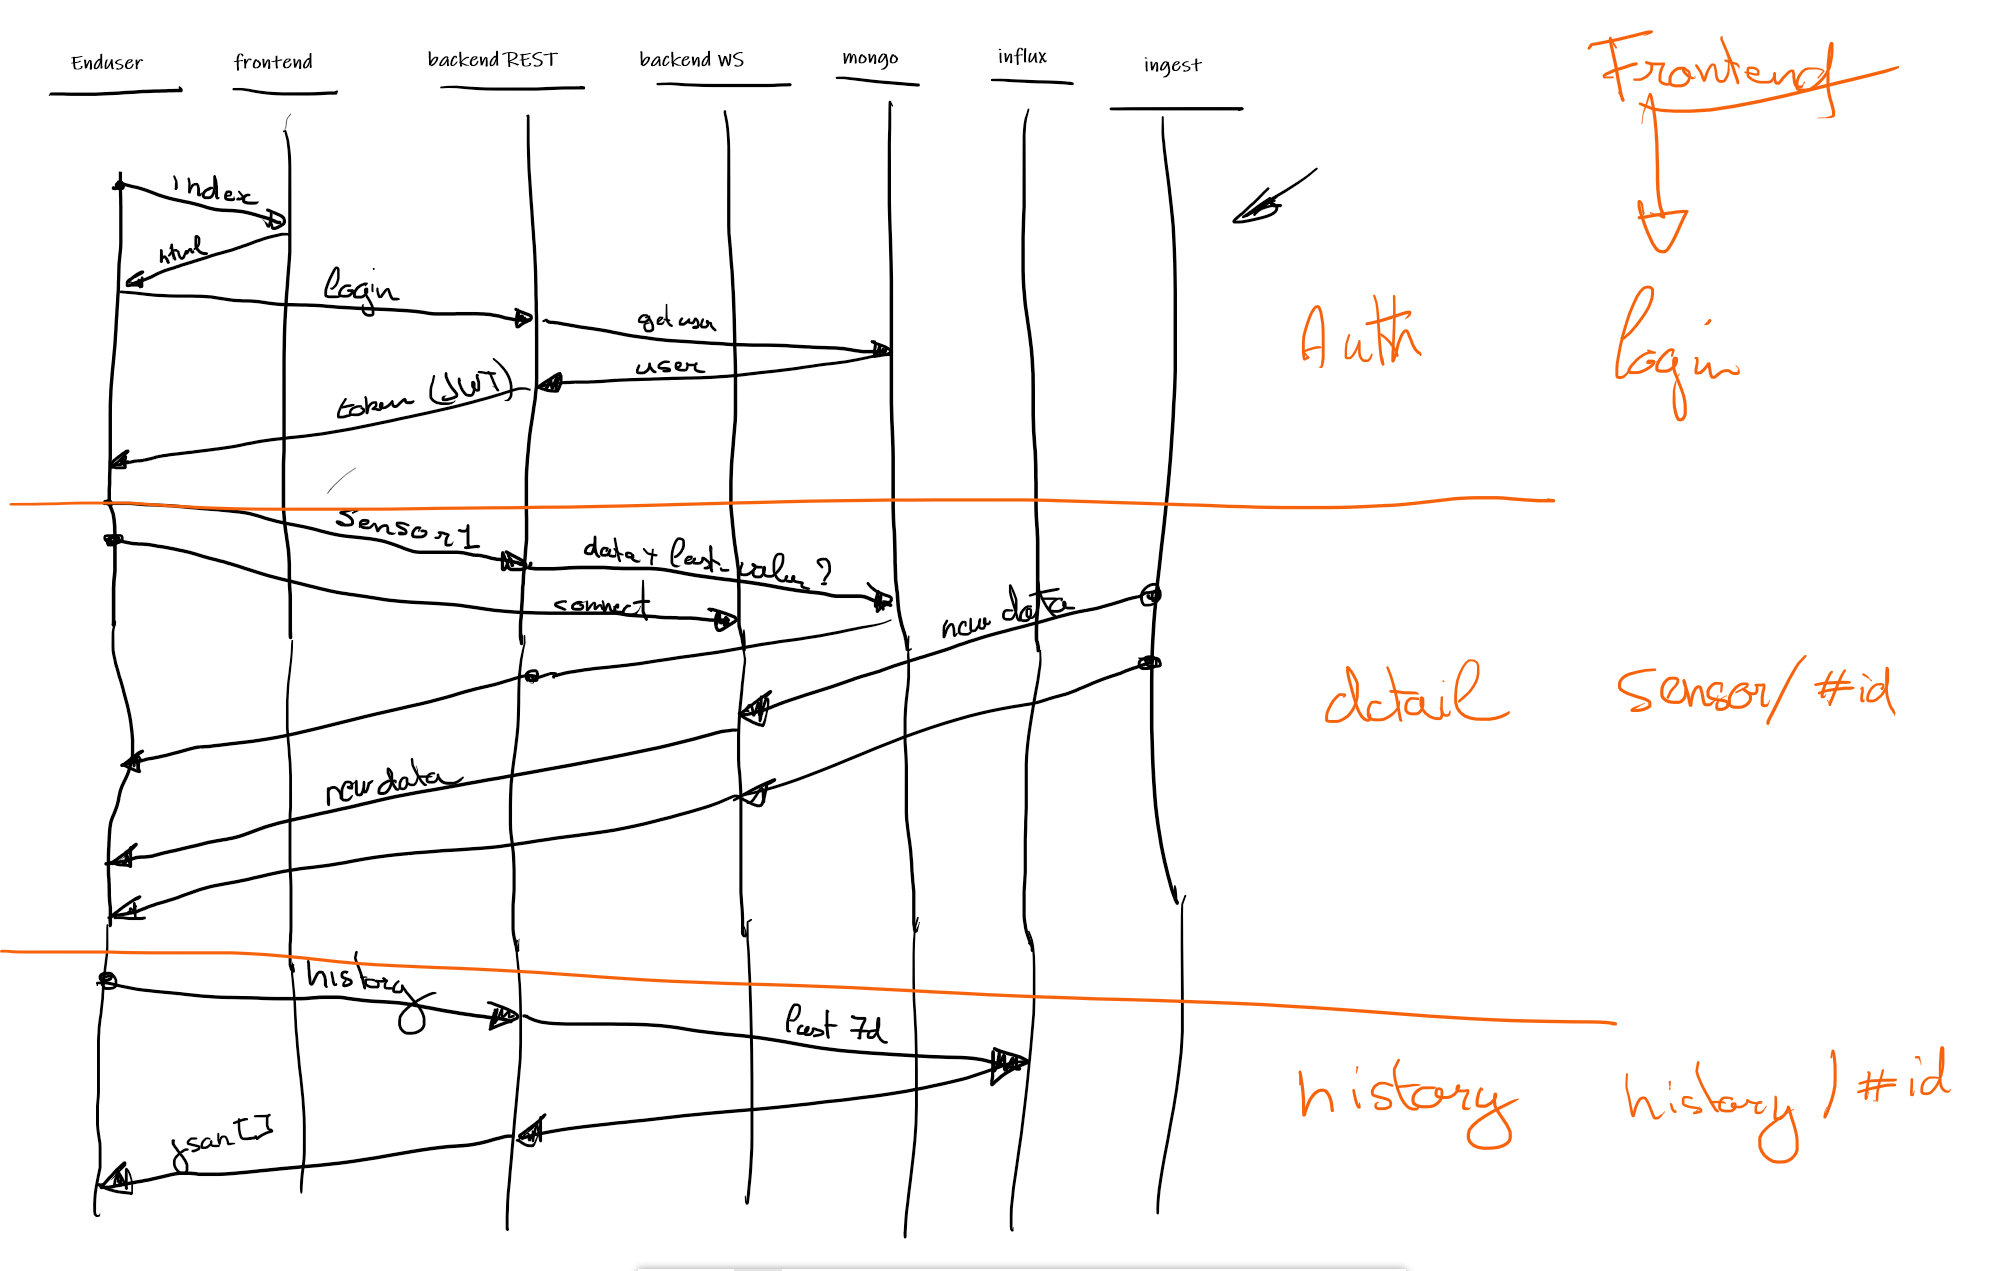 Enduser
frontend
backend REST
backend WS
mongo
influx
ingest
Frontend
index
html
login
get user
user
token (JWT)
Auth
login
Sensor1
data + last_value ?
connect
new data
new data
detail
sensor/#id
history
last 7d
json[]
history
history/#id